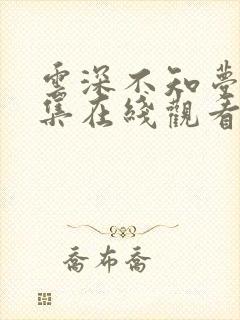 雲深不知夢
集在綫觀看
喬布喬